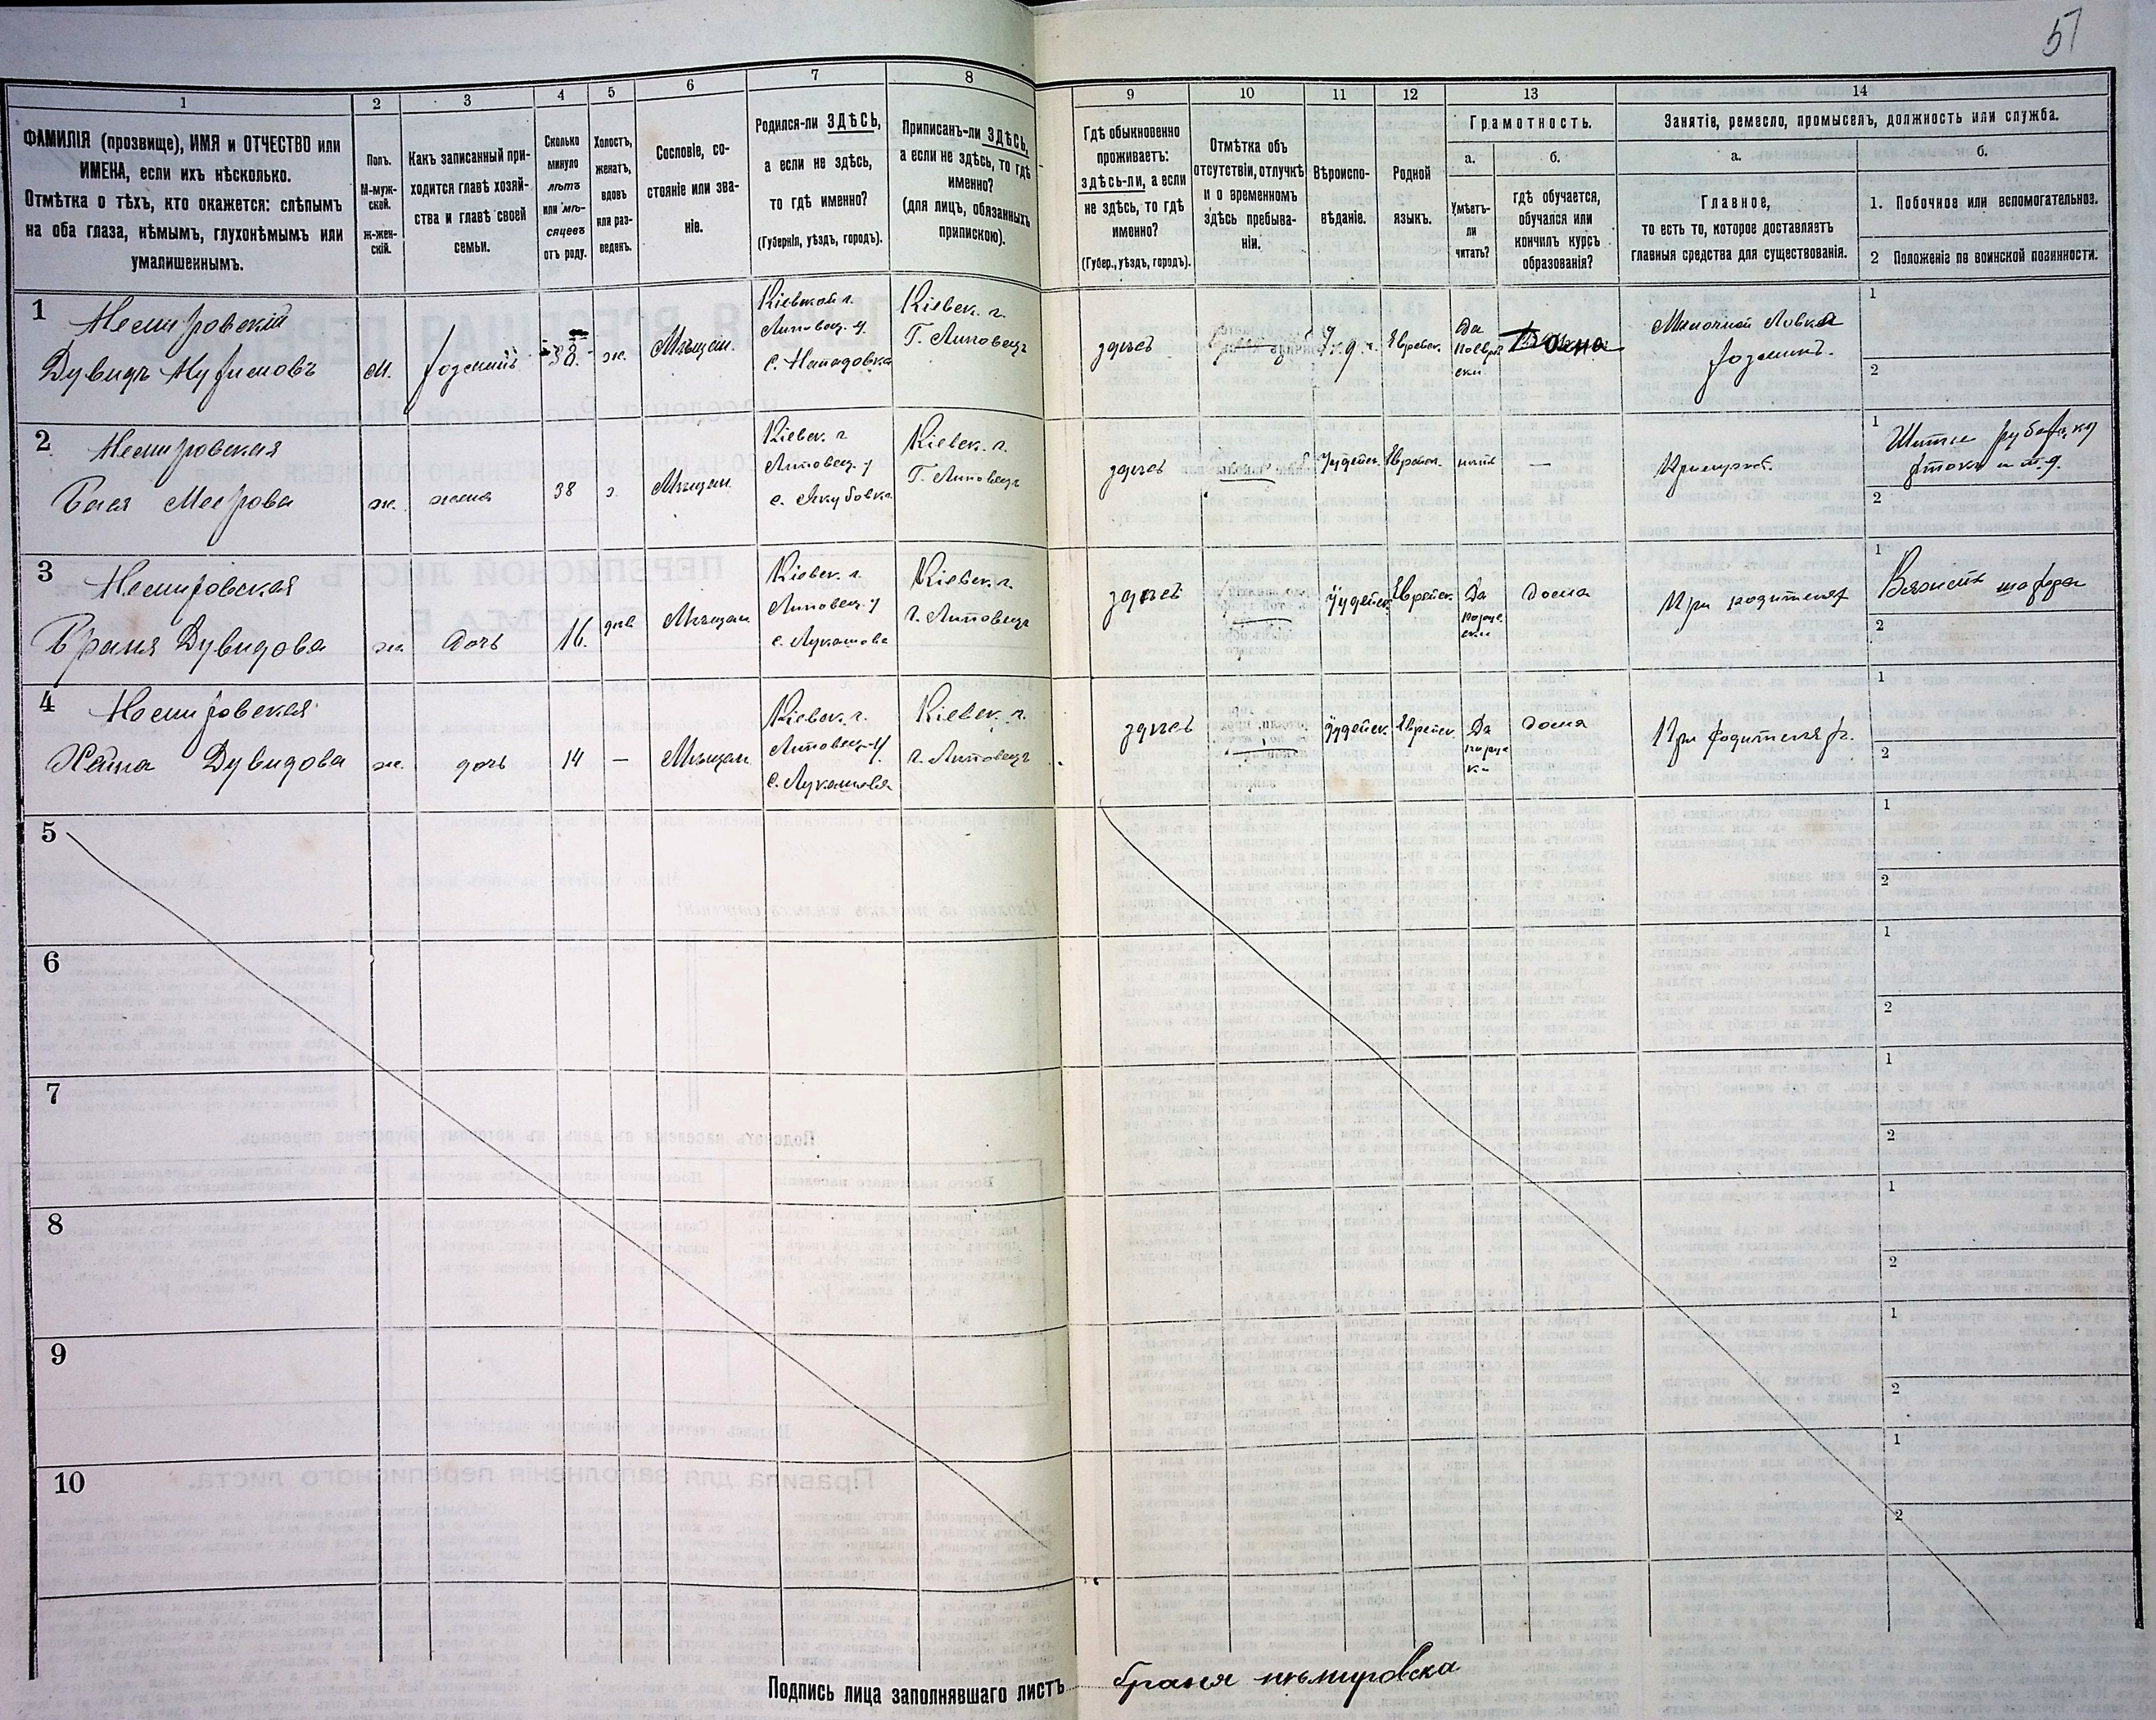 51
1
2
3
4
5
6
7
8
9
10
11
12
13
14
ФАМИЛІЯ (прозвище), ИМЯ и ОТЧЕСТВО или
ИМЕНА, если ихъ нѣсколько.
Отмѣтка о тѣхъ, кто окажется: слѣпымъ
на оба глаза, нѣмымъ, глухонѣмымъ или
умалишеннымъ.
Полъ.
М-муж-
ской.
Ж-жен-
скій.
Какъ записанный при-
ходится главѣ хозяй-
ства и главѣ своей
семьи.
Сколько
минуло
лѣтъ
или мѣ-
сяцевъ
отъ роду.
Холостъ,
женатъ,
вдовъ
или раз-
веденъ.
Сословіе, со-
стояніе или зва-
ніе.
Родился-ли ЗДѢСЬ,
а если не здѣсь,
то гдѣ именно?
(Губернія, уѣздъ, городъ).
Приписанъ-ли ЗДѢСЬ,
а если не здѣсь, то гдѣ
именно?
(для лицъ, обязанныхъ
припискою).
Гдѣ обыкновенно
проживаетъ:
здѣсь-ли, а если
не здѣсь, то гдѣ
именно?
(Губер., уѣздъ, городъ).
Отмѣтка объ
отсутствіи, отлучкѣ
и о временномъ
здѣсь пребыва-
ніи.
Вѣроиспо-
вѣданіе.
Родной
языкъ.
Грамотность.
а.
Умѣетъ-
ли
читать?
б.
гдѣ обучается,
обучался или
кончилъ курсъ
образованія?
Занятіе, ремесло, промыселъ, должность или служба.
а.
Главное,
то есть то, которое доставляетъ
главныя средства для существованія.
б.
1. Побочное или вспомогательное.
2 Положеніе по воинской повинности.
1
Немировскій
Дувидъ
М.
Хозяинъ
38
ж.
Мѣщан.
Кіевской г.
Липовец. у.
с. Нападовка
Кіевск. г.
Г. Липовецъ
здѣсь
Еврейск.
Да
Дома
Мелочной Лавки
Хозяинъ.
1
2
2
Немировская
Бася Меерова
ж.
жена
38
з.
Мѣщан.
Кіевск. г.
Липовец. у
с. Якубовка
Кіевск. г.
Г. Липовецъ
здѣсь
Іудейск.
Еврейск.
нѣтъ
—
При мужѣ.
1
Шитье рубах
и т. д.
2
3
Немировская
Браня Дувидова
ж.
дочь
16.
дѣв
Мѣщан
Кіевск. г.
Липовец. у
с. Лукашова
Кіевск. г.
г. Липовецъ
здѣсь
Іудейск.
Еврейск.
Да
Дома
При родителях
1
2
4
Немировская
Хайна Дувидова
ж.
дочь
14
—
Мѣщан
Кіевск. г.
Липовец. у.
с. Лукашовка
Кіевск. г.
г. Липовецъ
здѣсь
Іудейск.
Еврейск.
Да
Дома
При родителях.
1
2
5
1
2
6
1
2
7
1
2
8
1
2
9
1
2
10
1
2
Подпись лица заполнявшаго листъ
браня нѣмировска